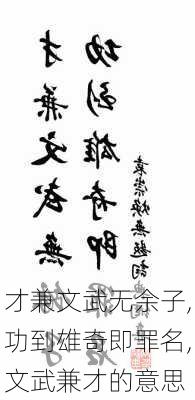 才兼文武無
功到雄奇即
袁崇煥無題詞
才兼文武无余子,
功到雄奇即罪名,
文武兼才的意思